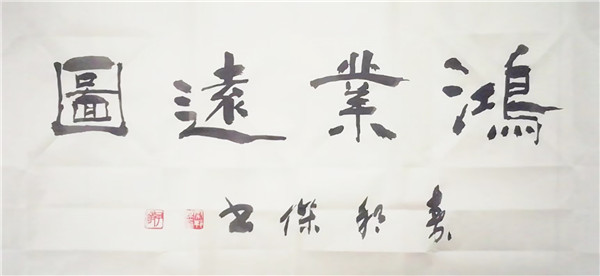 鴻業遠圖
傑书